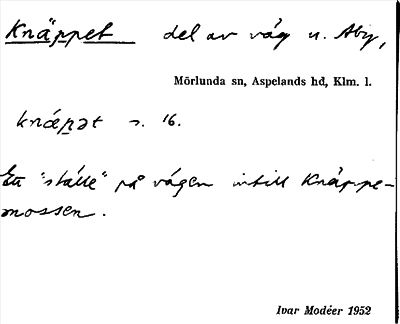 Knäppet del av väg n. Åby,
Mörlunda sn, Aspelands hd, Klm. l.
knæpət s. 16.
Ett "ställe" på vägen intill Knäppe-
mossen.
Ivar Modéer 1952